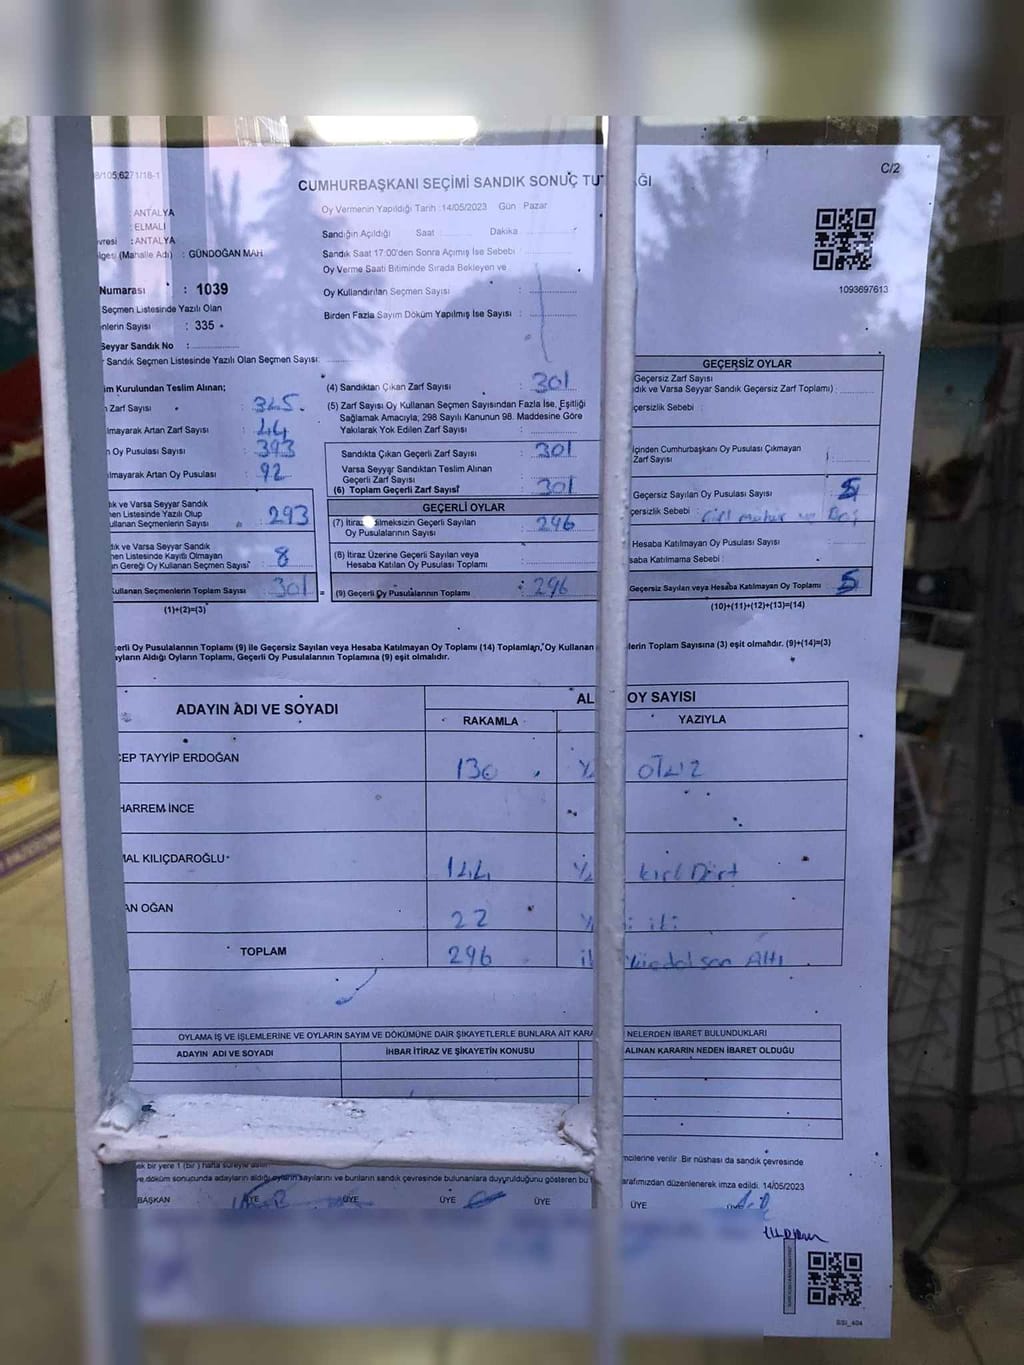 8/105,6271/18-1
C/2
CUMHURBAŞKANI SEÇİMİ SANDIK SONUÇ TU AĞI
: ANTALYA
: ELMALI
vresi : ANTALYA
lgesi (Mahalle Adı) : GÜNDOĞAN MAH
Numarası : 1039
Seçmen Listesinde Yazılı Olan
nlerin Sayısı : 335
Seyyar Sandık No :
Sandık Seçmen Listesinde Yazılı Olan Seçmen Sayısı:
Oy Vermenin Yapıldığı Tarih :14/05/2023 Gün : Pazar
Sandığın Açıldığı Saat Dakika
Sandık Saat 17:00'den Sonra Açımış İse Sebebi :
Oy Verme Saati Bitiminde Sırada Bekleyen ve
Oy Kullandırılan Seçmen Sayısı :
Birden Fazla Sayım Döküm Yapılmış İse Sayısı :
1093697613
m Kurulundan Teslim Alınan;
Zarf Sayısı : 345
lmayarak Artan Zarf Sayısı : 44
Oy Pusulası Sayısı : 393
lmayarak Artan Oy Pusulası : 92
ık ve Varsa Seyyar Sandık
en Listesinde Yazılı Olup
ullanan Seçmenlerin Sayısı : 293
ık ve Varsa Seyyar Sandık
en Listesinde Kayıtlı Olmayan
n Gereği Oy Kullanan Seçmen Sayısı : 8
ullanan Seçmenlerin Toplam Sayısı : 301 =
(1)+(2)=(3)
(4) Sandıktan Çıkan Zarf Sayısı : 301
(5) Zarf Sayısı Oy Kullanan Seçmen Sayısından Fazla İse, Eşitliği
Sağlamak Amacıyla; 298 Sayılı Kanunun 98. Maddesine Göre
Yakılarak Yok Edilen Zarf Sayısı :
Sandıkta Çıkan Geçerli Zarf Sayısı : 301
Varsa Seyyar Sandıktan Teslim Alınan
Geçerli Zarf Sayısı :
(6) Toplam Geçerli Zarf Sayısı : 301
GEÇERLİ OYLAR
(7) İtiraz dilmeksizin Geçerli Sayılan
Oy Pusulalarının Sayısı : 296
(8) İtiraz Üzerine Geçerli Sayılan veya
Hesaba Katılan Oy Pusulası Toplamı :
(9) Geçerli Oy Pusulalarının Toplamı : 296
GEÇERSİZ OYLAR
Geçersiz Zarf Sayısı
dık ve Varsa Seyyar Sandık Geçersiz Zarf Toplamı) :
çersizlik Sebebi :
İçinden Cumhurbaşkanı Oy Pusulası Çıkmayan
Zarf Sayısı :
Geçersiz Sayılan Oy Pusulası Sayısı : 5
çersizlik Sebebi :
Hesaba Katılmayan Oy Pusulası Sayısı :
saba Katılmama Sebebi :
Geçersiz Sayılan veya Hesaba Katılmayan Oy Toplamı : 5
(10)+(11)+(12)+(13)=(14)
erli Oy Pusulalarının Toplamı (9) ile Geçersiz Sayılan veya Hesaba Katılmayan Oy Toplamı (14) Toplamları, Oy Kullanan lerin Toplam Sayısına (3) eşit olmalıdır. (9)+(14)=(3)
yların Aldığı Oyların Toplamı, Geçerli Oy Pusulalarının Toplamına (9) eşit olmalıdır.
ADAYIN ADI VE SOYADI AL OY SAYISI
RAKAMLA YAZIYLA
EP TAYYİP ERDOĞAN 130 Y OTUZ
HARREM İNCE
AL KILIÇDAROĞLU 144 Y kırk Dört
AN OĞAN 22 Y i iki
TOPLAM 296 ik yüzdoksan Altı
OYLAMA İŞ VE İŞLEMLERİNE VE OYLARIN SAYIM VE DÖKÜMÜNE DAİR ŞİKAYETLERLE BUNLARA AİT KARA NELERDEN İBARET BULUNDUKLARI
ADAYIN ADI VE SOYADI İHBAR İTİRAZ VE ŞİKAYETİN KONUSU ALINAN KARARIN NEDEN İBARET OLDUĞU
ek bir yere 1 (bir) hafta süreyle mcilerine verilir. Bir nüshası da sandık çevresinde
ve döküm sonucunda adayların aldığı oyların sayılarını ve bunların sandık çevresinde bulunanlara duyurulduğunu gösteren bu arafımızdan düzenlenerek imza edildi. 14/05/2023
BAŞKAN ÜYE ÜYE ÜYE ÜYE ÜYE
SSI_404